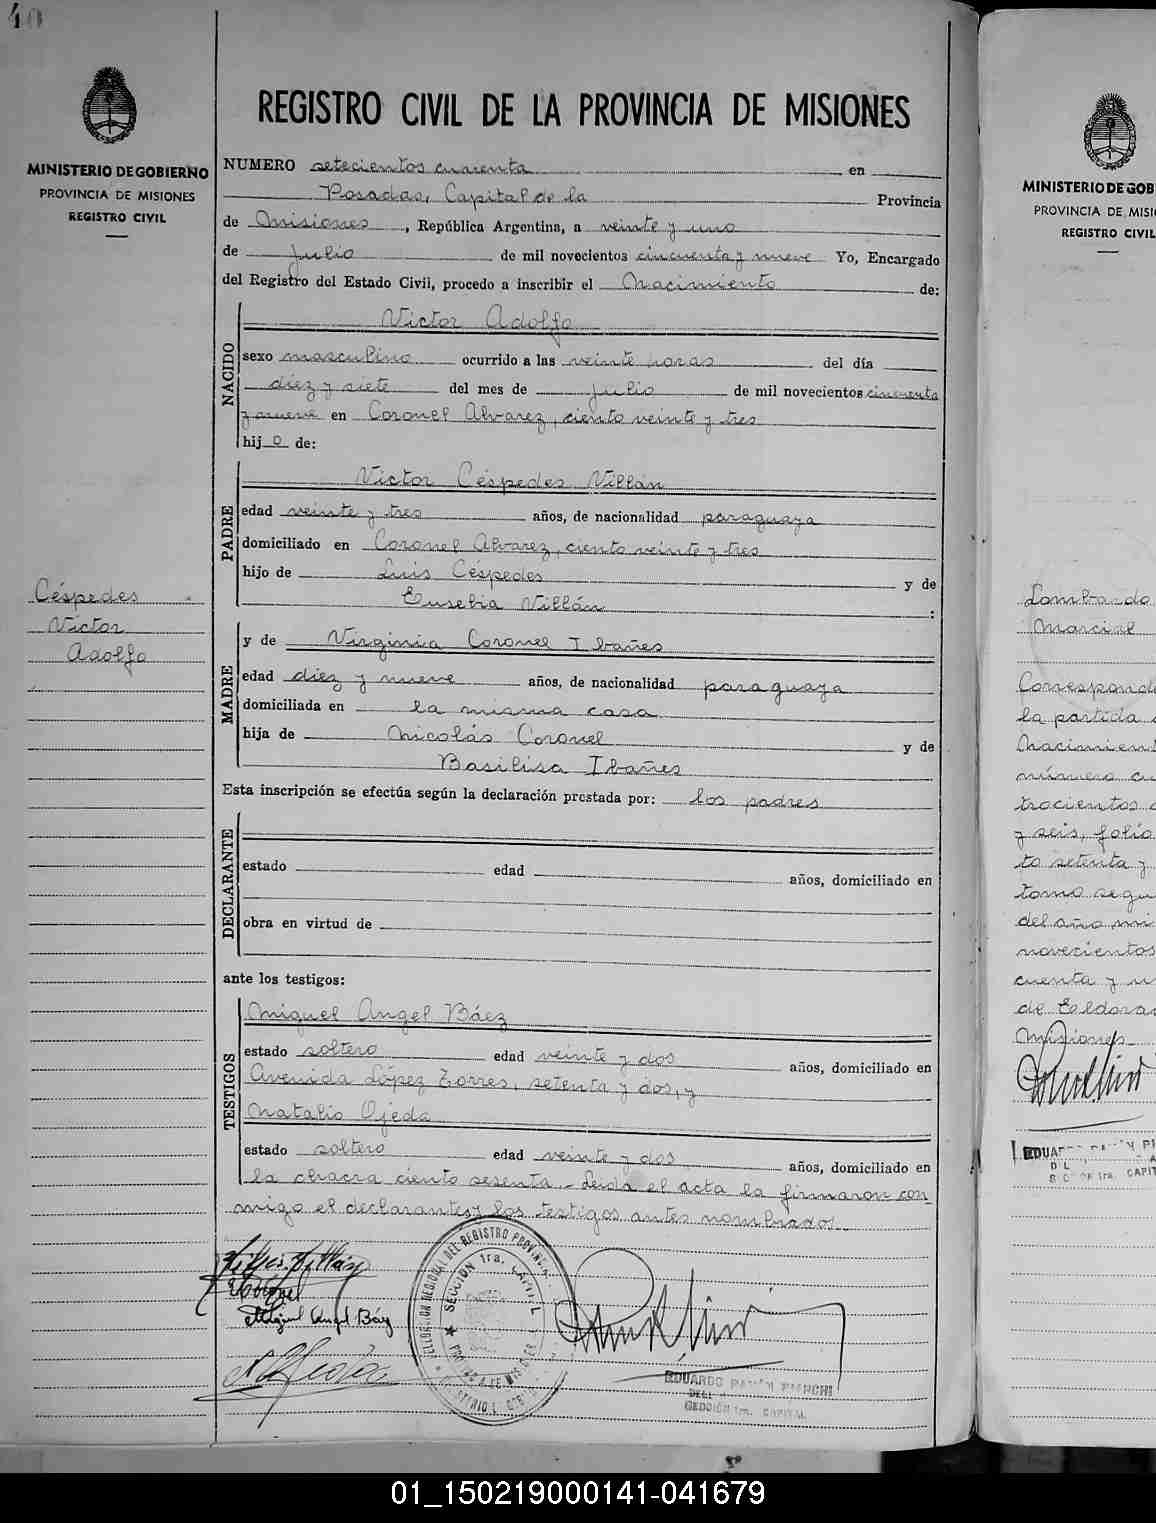 40
MINISTERIO DE GOBIERNO
PROVINCIA DE MISIONES
REGISTRO CIVIL
REGISTRO CIVIL DE LA PROVINCIA DE MISIONES
NUMERO setecientos cuarenta en
Posadas, Capital de la Provincia
de Misiones, República Argentina, a veinte y uno
de Julio de mil novecientos cincuenta y nueve Yo, Encargado
del Registro del Estado Civil, procedo a inscribir el Nacimiento de:
NACIDO
Victor Adolfo
sexo masculino ocurrido a las veinte horas del día
diez y siete del mes de Julio de mil novecientos cincuenta
y nueve en Coronel Alvarez, ciento veinte y tres
hijo de:
PADRE
Victor Céspedes Villán
edad veinte y tres años, de nacionalidad paraguaya
domiciliado en Coronel Alvarez, ciento veinte y tres
hijo de Luis Céspedes y de
Eusebia Villán :
MADRE
y de Virginia Coronel Ibañes
edad diez y nueve años, de nacionalidad paraguaya
domiciliada en la misma casa
hija de Nicolás Coronel y de
Basilisa Ibañes
Esta inscripción se efectúa según la declaración prestada por: los padres
DECLARANTE
estado edad años, domiciliado en
obra en virtud de
ante los testigos:
TESTIGOS
Miguel Angel Báez
estado soltero edad veinte y dos años, domiciliado en
Avenida López Torres, setenta y dos, y
Natalio Ojeda
estado soltero edad veinte y dos años, domiciliado en
la chacra ciento sesenta.- Leida el acta la firmaron con
migo el declarantes y los testigos antes nombrados.
Céspedes
Victor
Adolfo
Villán
Coronel
Miguel Angel Báez
N Ojeda
DELEGACION REGIONAL DEL REGISTRO PROVINCIAL
SECCION 1ra. CAPITAL
PROVINCIA DE MISIONES
EDUARDO RAMÓN BIANCHI
SECCIÓN 1ra. CAPITAL
MINISTERIO DE GOB
PROVINCIA DE MISI
REGISTRO CIVIL
Lombardo
Marcial
Corresponde
la partida
Nacimien
número cu
trocientos
y seis, folio
to setenta y
tomo segu
del año mi
novecientos
cuenta y u
de Eldora
Misiones
1ra. CAPIT
01_150219000141-041679